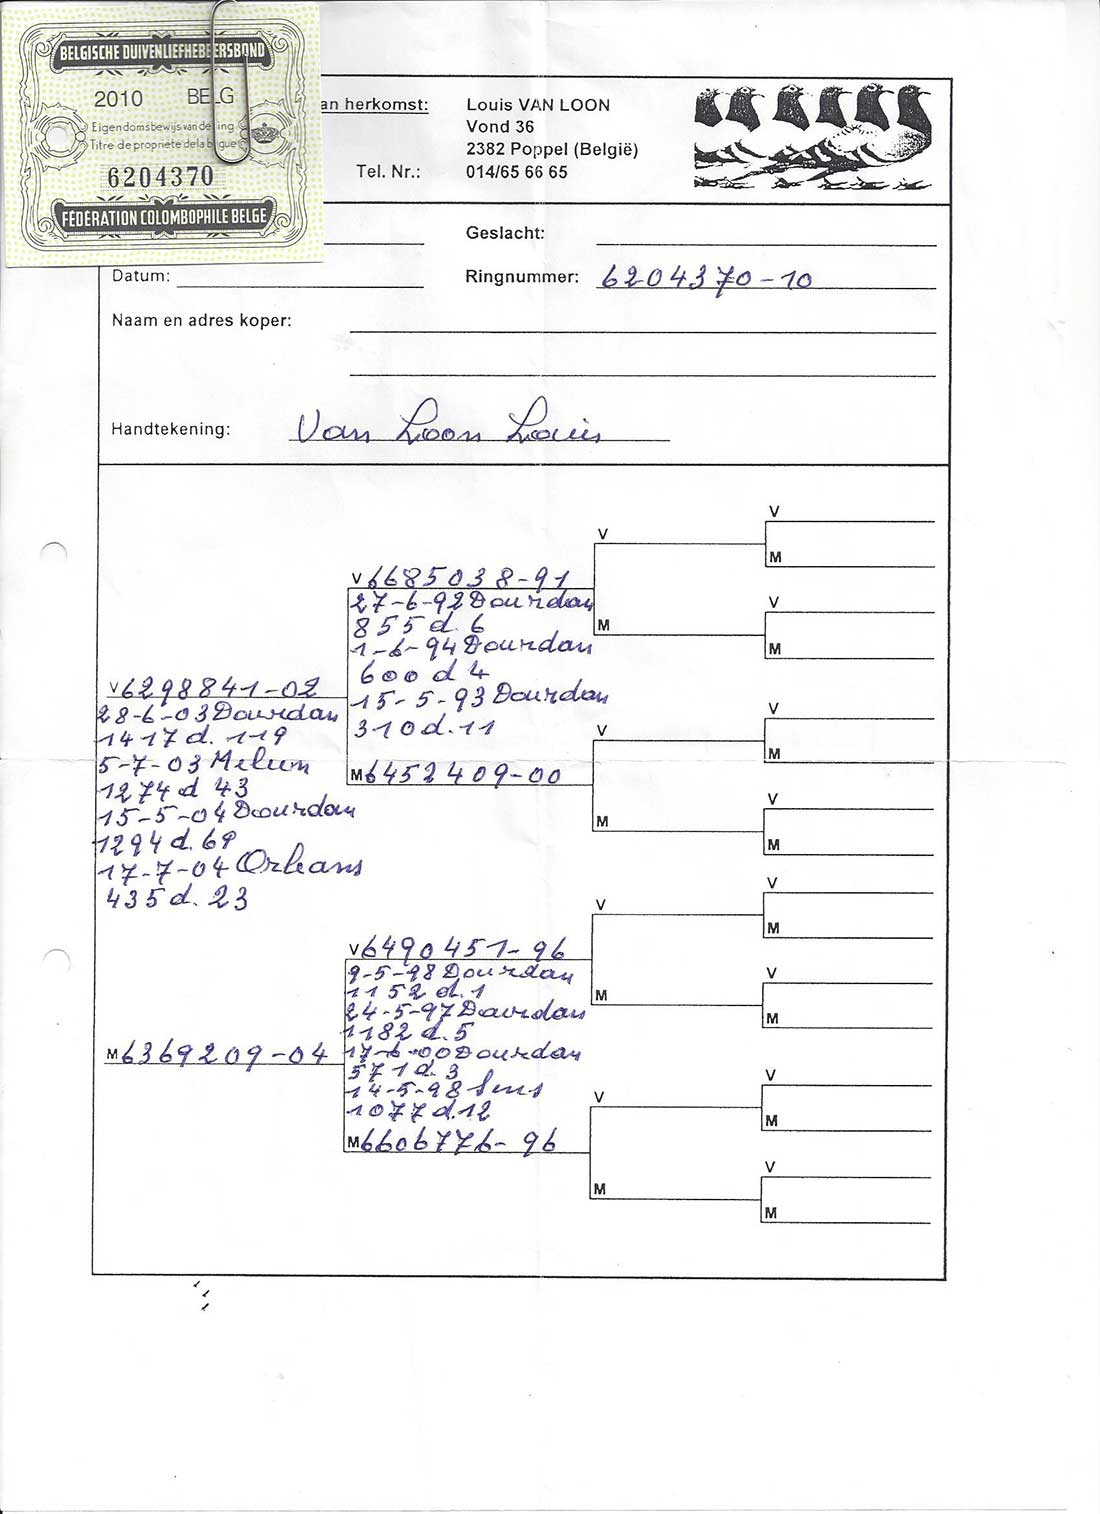 BELGISCHE DUIVENLIEFHEBBERSBOND
2010 BELG
Eigendomsbewijs van de ring
Titre de propriété de la bague
6204370
FÉDÉRATION COLOMBOPHILE BELGE
an herkomst: Louis VAN LOON
Vond 36
2382 Poppel (België)
Tel. Nr.: 014/65 66 65
Geslacht:
Datum:
Ringnummer: 6204370-10
Naam en adres koper:
Handtekening: Van Loon Louis
V
V
M
V 6685038-91
27-6-92 Dourdan
855 d. 6
1-6-94 Dourdan
600 d 4
15-5-93 Dourdan
310 d. 11
M
V
M
V 6298841-02
28-6-03 Dourdan
1417 d. 119
5-7-03 Melun
1274 d 43
15-5-04 Dourdan
1294 d. 69
17-7-04 Orleans
435 d. 23
V
V
M
M 6452409-00
M
V
M
V
V
M
V 6490451-96
9-5-98 Dourdan
1152 d. 1
24-5-97 Dourdan
1182 d. 5
17-6-00 Dourdan
571 d. 3
14-5-98 Sens
1077 d. 12
M
V
M
M 6369209-04
V
V
M
M 6606776-96
M
V
M